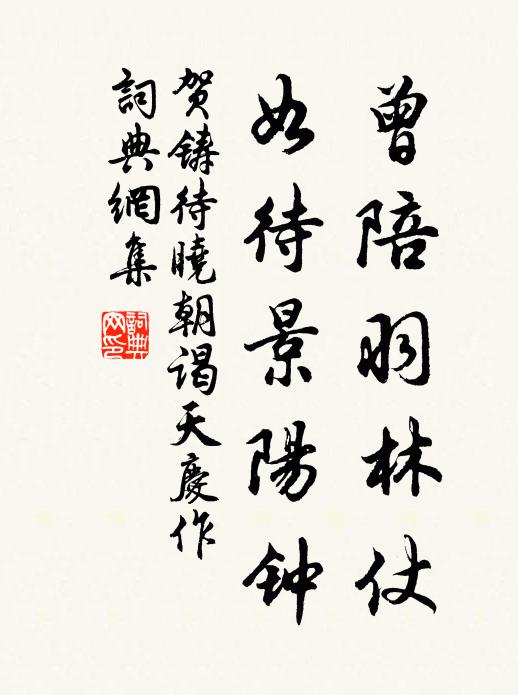 曾陪羽林仗
如待景陽钟
贺鑄待曉朝谒天慶作
詞典網集
詞典网印